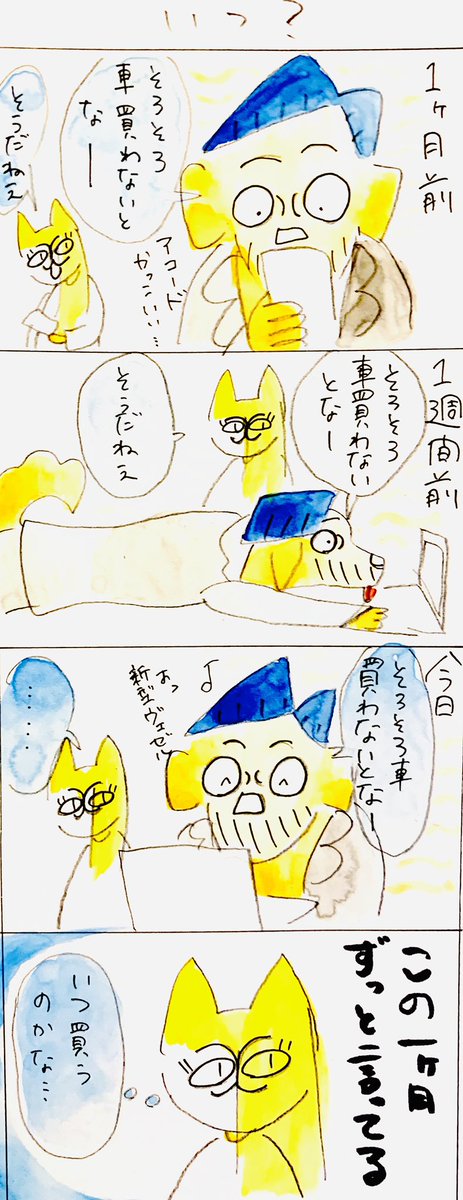 いつ?
1ヶ月前
そろそろ
車買わないと
なー
アコード
かっこいい…
そうだねえ
1週間前
そろそろ
車買わない
となー
そうだねえ
今日
そろそろ車
買わないとなー
♪
あっ
新型ヴェゼル
・・・・
この一ヶ月
ずっと言ってる
いつ買う
のかな…